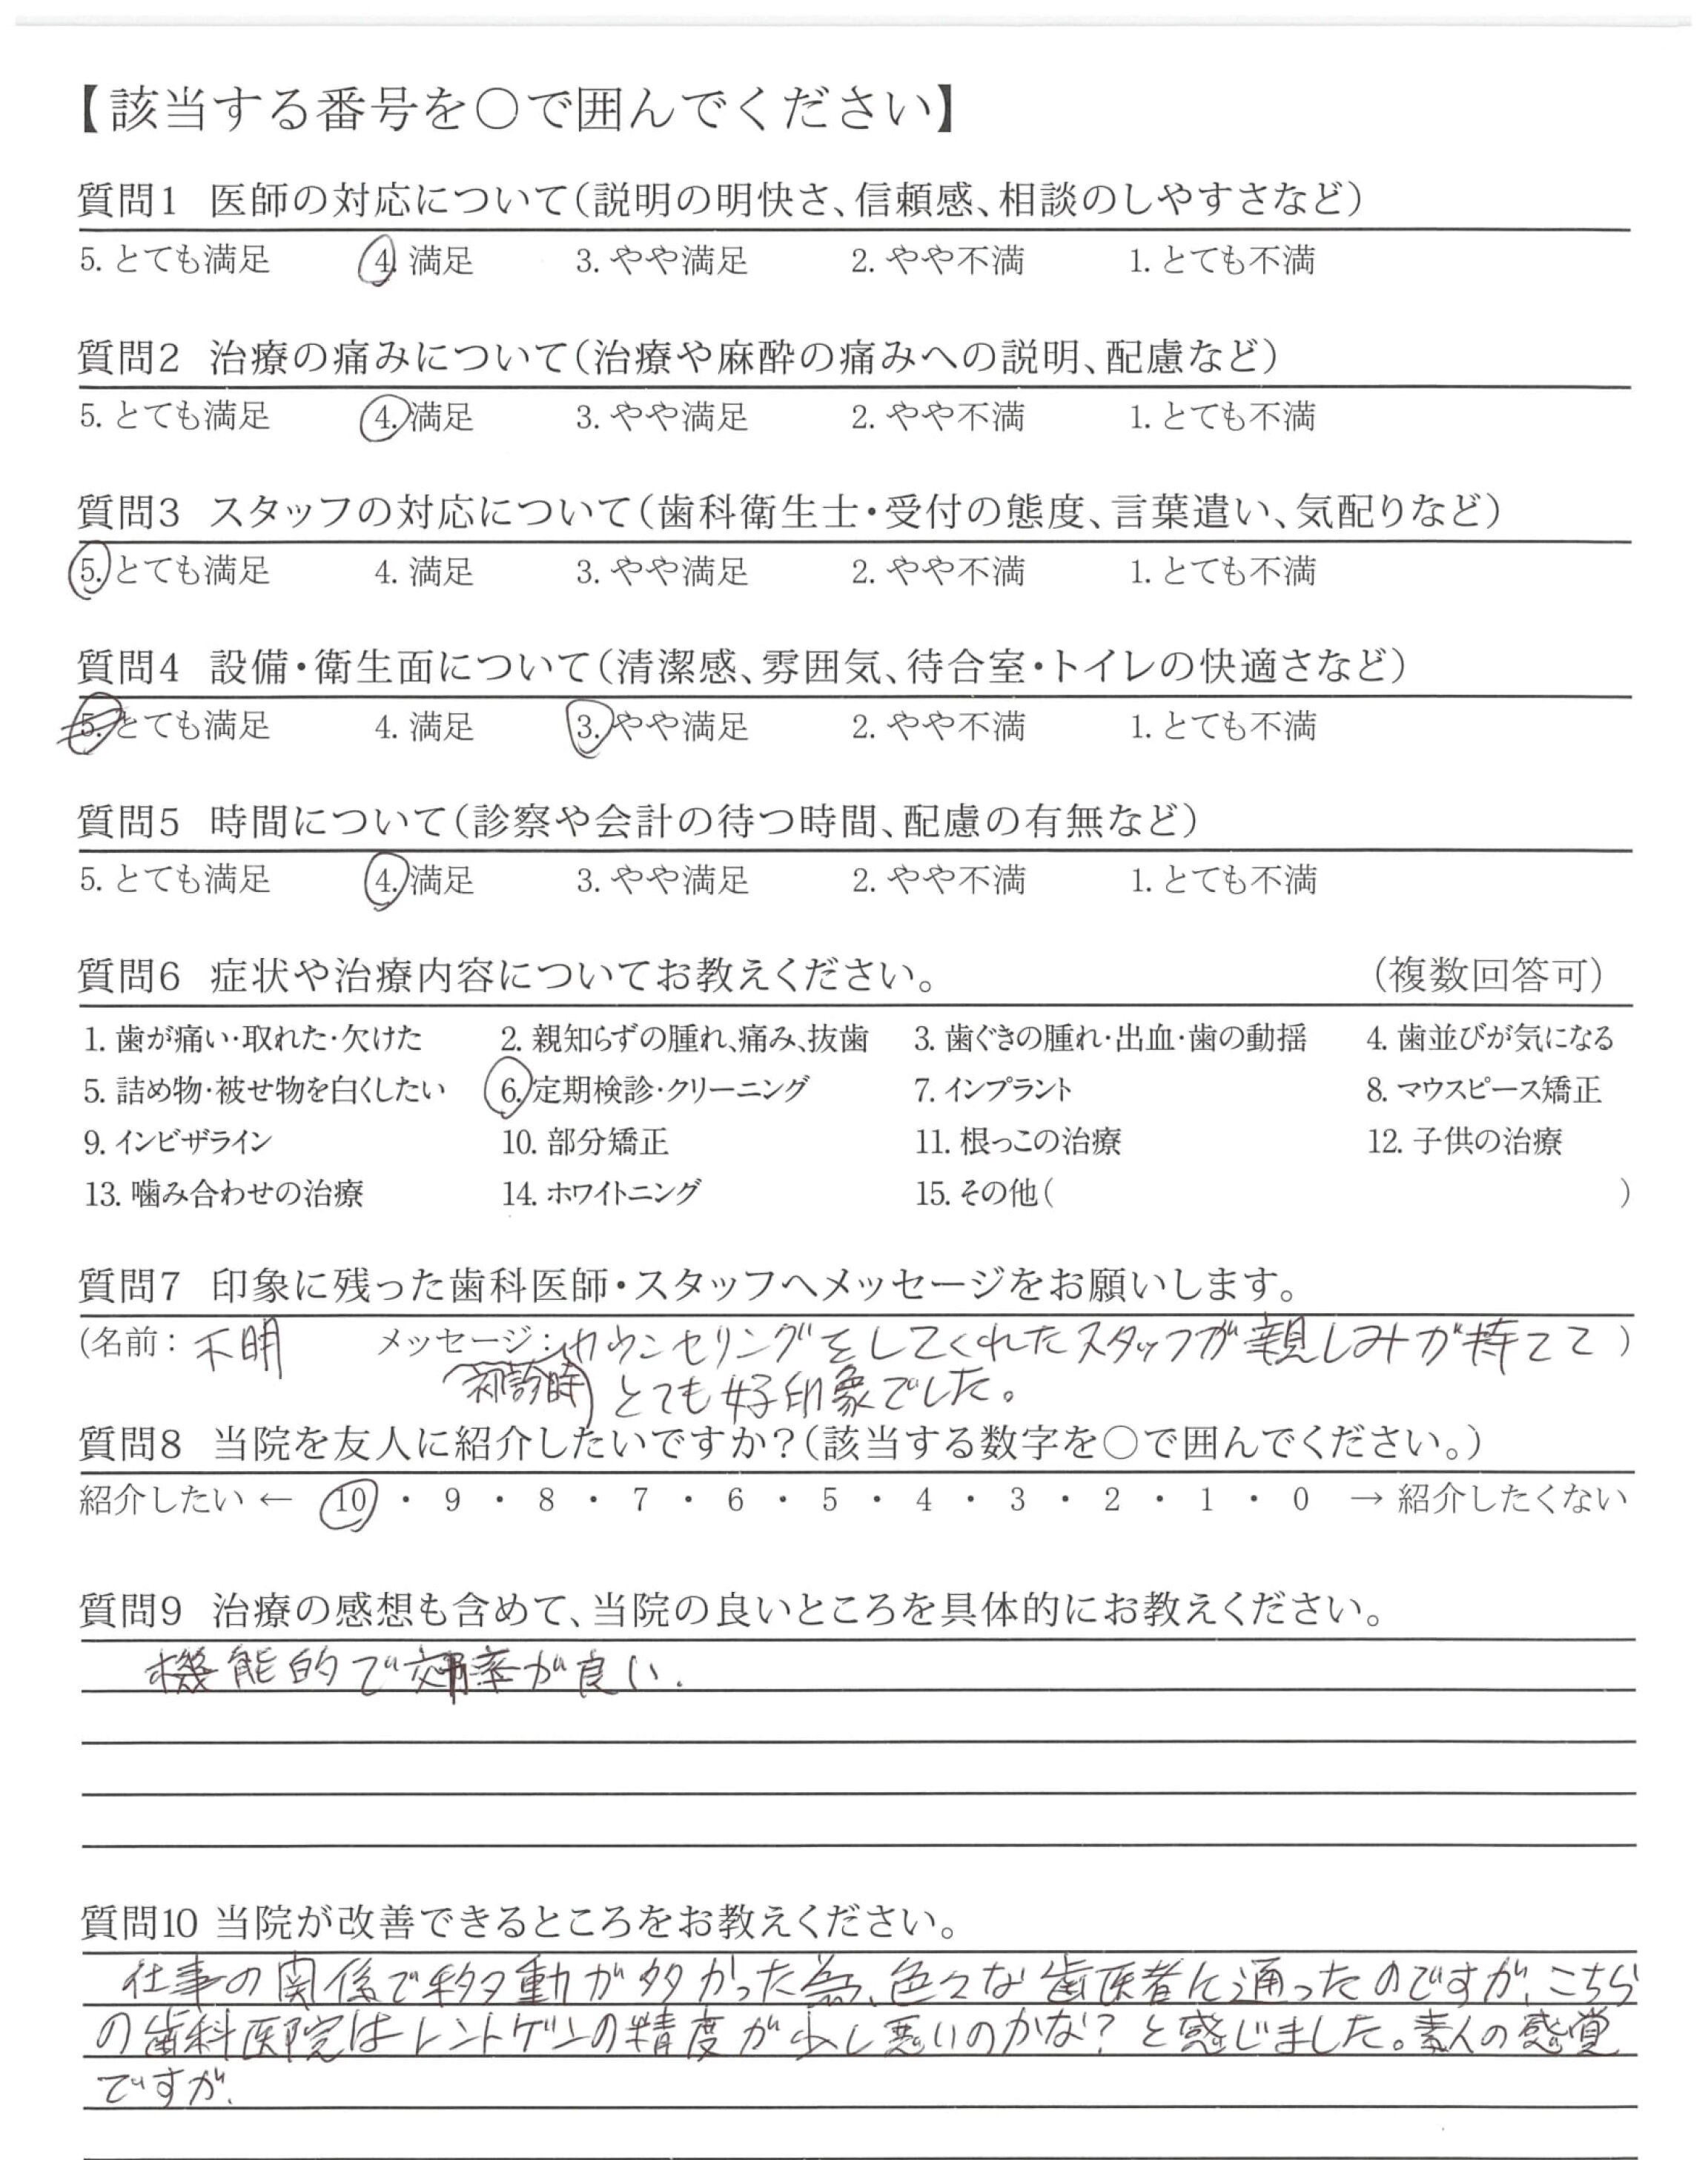 【該当する番号を○で囲んでください】
質問1 医師の対応について(説明の明快さ、信頼感、相談のしやすさなど)
5. とても満足 4. 満足 3. やや満足 2. やや不満 1. とても不満
質問2 治療の痛みについて(治療や麻酔の痛みへの説明、配慮など)
5. とても満足 4. 満足 3. やや満足 2. やや不満 1. とても不満
質問3 スタッフの対応について(歯科衛生士・受付の態度、言葉遣い、気配りなど)
5. とても満足 4. 満足 3. やや満足 2. やや不満 1. とても不満
質問4 設備・衛生面について(清潔感、雰囲気、待合室・トイレの快適さなど)
5. とても満足 4. 満足 3. やや満足 2. やや不満 1. とても不満
質問5 時間について(診察や会計の待つ時間、配慮の有無など)
5. とても満足 4. 満足 3. やや満足 2. やや不満 1. とても不満
質問6 症状や治療内容についてお教えください。 (複数回答可)
1. 歯が痛い・取れた・欠けた 2. 親知らずの腫れ、痛み、抜歯 3. 歯ぐきの腫れ・出血・歯の動揺 4. 歯並びが気になる
5. 詰め物・被せ物を白くしたい 6. 定期検診・クリーニング 7. インプラント 8. マウスピース矯正
9. インビザライン 10. 部分矯正 11. 根っこの治療 12. 子供の治療
13. 噛み合わせの治療 14. ホワイトニング 15. その他( )
質問7 印象に残った歯科医師・スタッフへメッセージをお願いします。
(名前: 不明 メッセージ: カウンセリングをしてくれたスタッフが親しみが持てて )
初診時 とても好印象でした。
質問8 当院を友人に紹介したいですか?(該当する数字を○で囲んでください。)
紹介したい ← 10 ・ 9 ・ 8 ・ 7 ・ 6 ・ 5 ・ 4 ・ 3 ・ 2 ・ 1 ・ 0 → 紹介したくない
質問9 治療の感想も含めて、当院の良いところを具体的にお教えください。
機能的で効率が良い.
質問10 当院が改善できるところをお教えください。
仕事の関係で移動が多かった為、色々な歯医者に通ったのですが、こちら
の歯科医院はレントゲンの精度が少し悪いのかな? と感じました。素人の感覚
ですが.